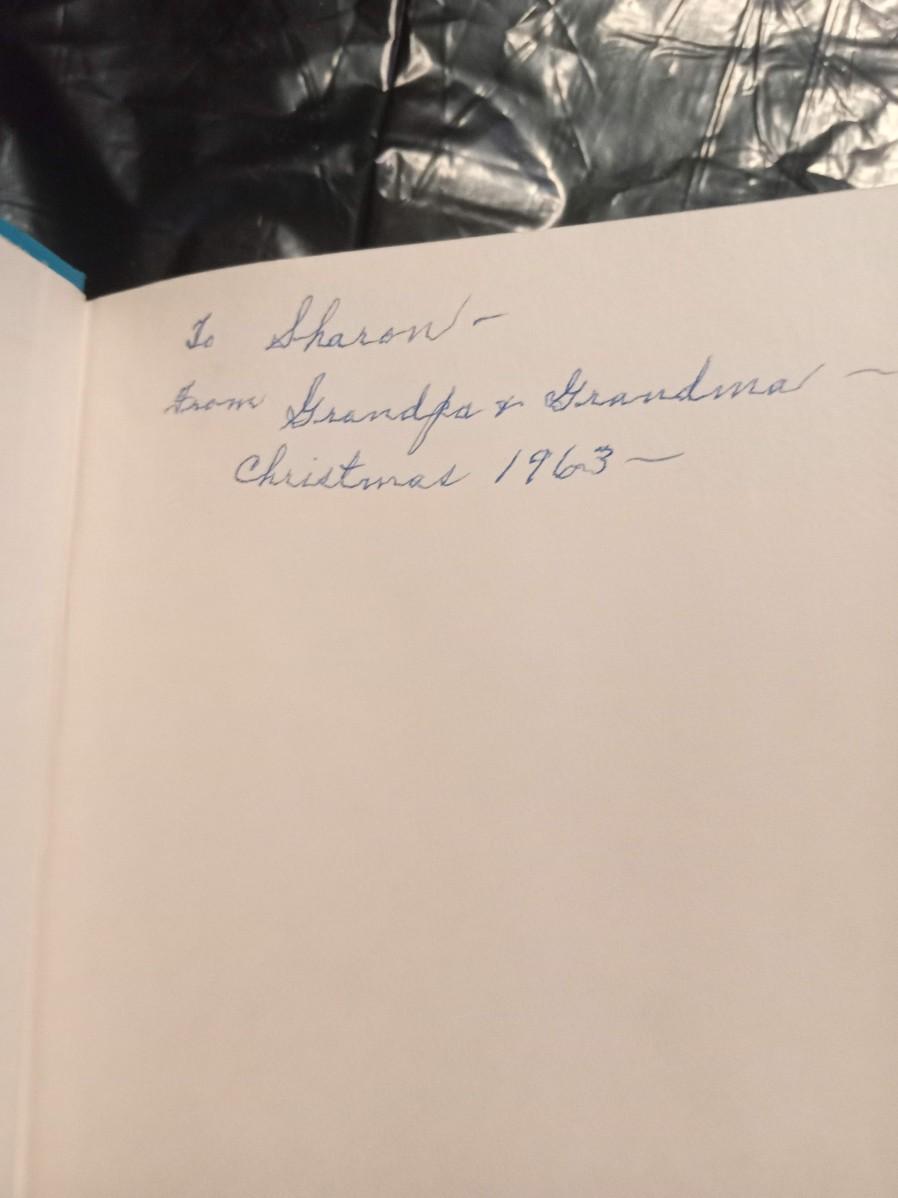 To Sharon -
From Grandpa & Grandma -
Christmas 1963 -